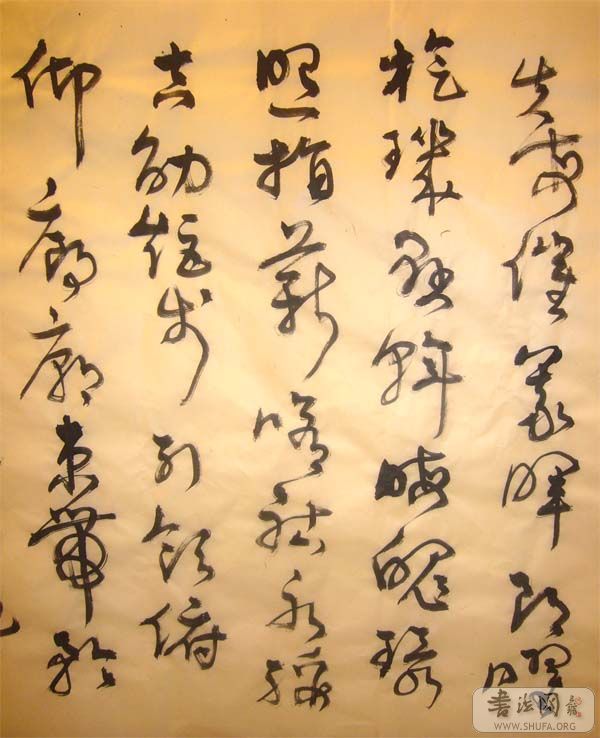 矢每催羲暉朗曜
旋璣懸斡晦魄環
照指薪修祜永綏
吉劭矩步引領俯
仰廊廟束帶矜
書法网
WWW.SHUFA.ORG